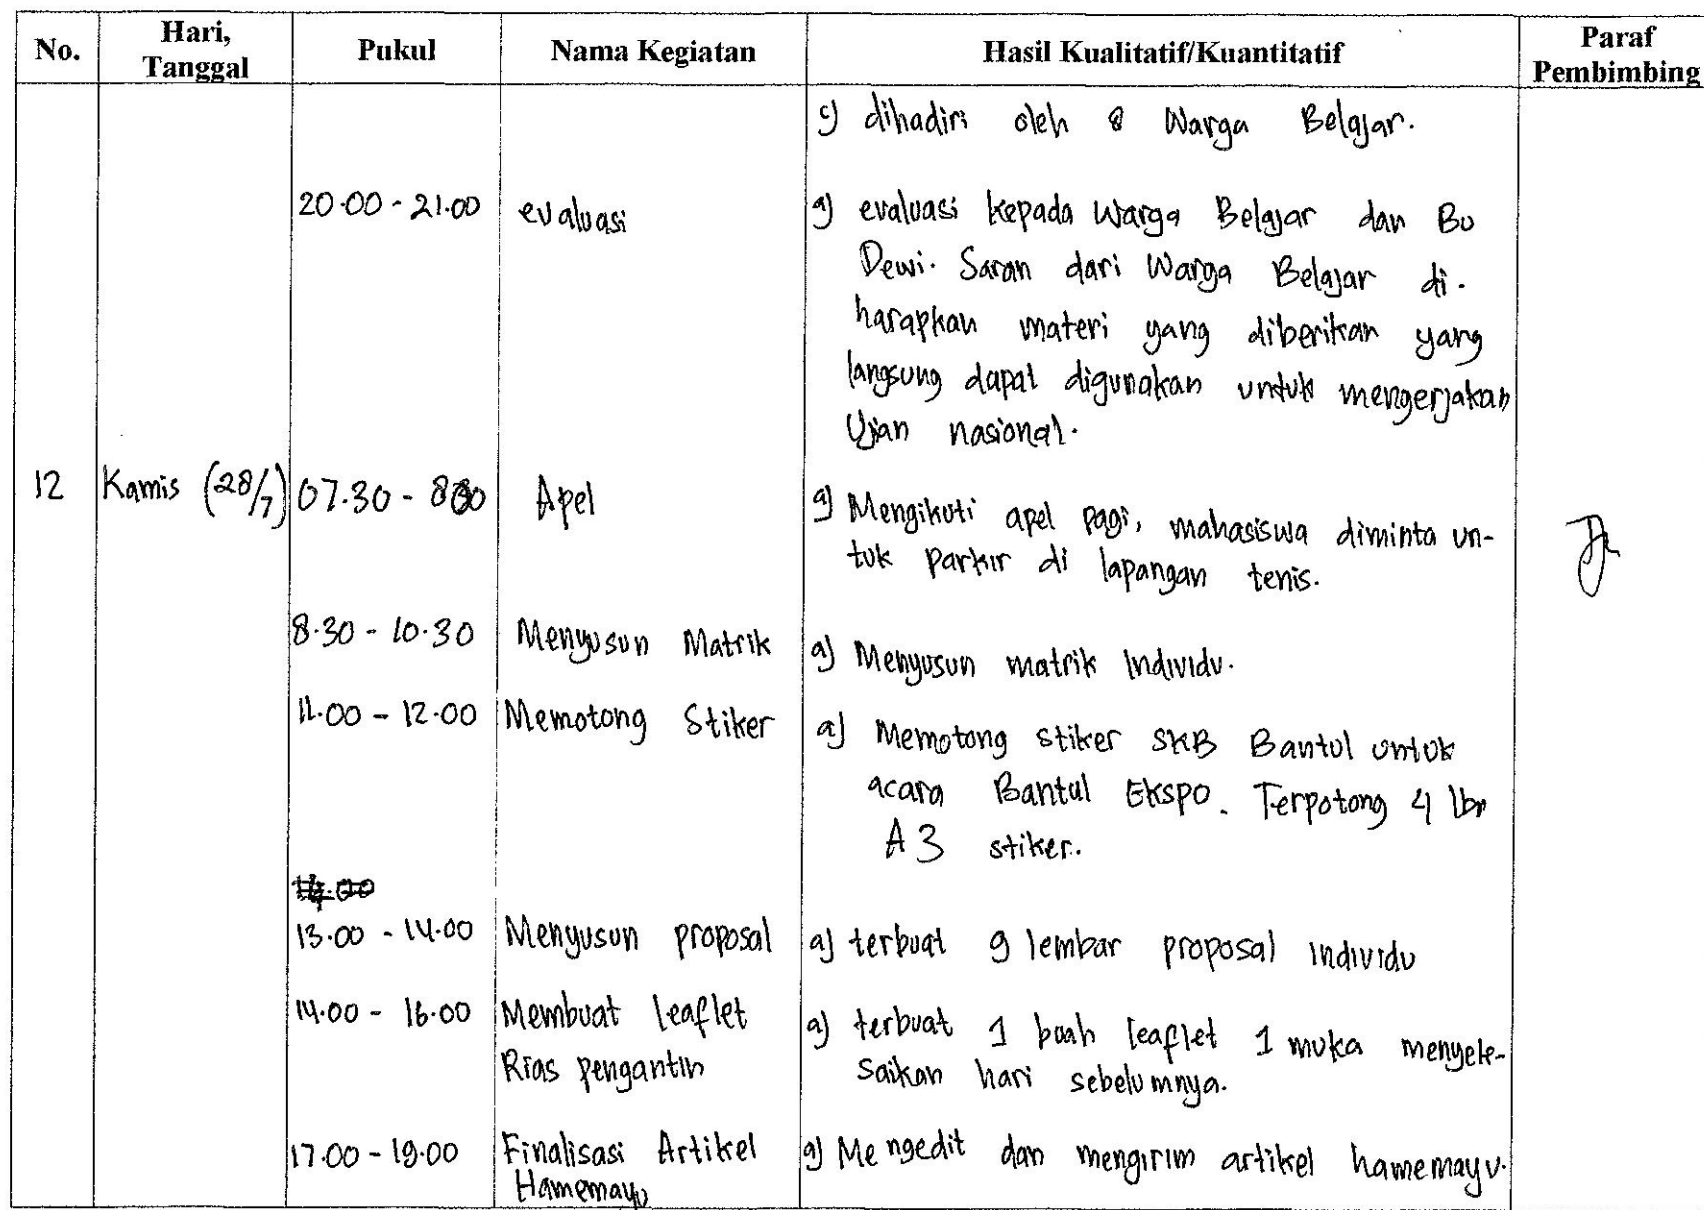 No. Hari, Tanggal Pukul Nama Kegiatan Hasil Kualitatif/Kuantitatif Paraf Pembimbing
c) dihadiri oleh 8 Warga Belajar.
20.00 - 21.00 evaluasi a) evaluasi kepada Warga Belajar dan Bu
Dewi. Saran dari Warga Belajar di-
harapkan materi yang diberikan yang
langsung dapat digunakan untuk mengerjakan
Ujian nasional.
12 Kamis (28/7) 07.30 - 830 Apel a) Mengikuti apel pagi, mahasiswa diminta un-
tuk parkir di lapangan tenis.
8.30 - 10.30 Menyusun Matrik a) Menyusun matrik Individu.
11.00 - 12.00 Memotong Stiker a) Memotong stiker SKB Bantul untuk
acara Bantul Ekspo. Terpotong 4 lbr
A3 stiker.
13.00 - 14.00 Menyusun proposal a) terbuat 9 lembar proposal individu
14.00 - 16.00 Membuat leaflet a) terbuat 1 buah leaflet 1 muka menyele-
Rias pengantin saikan hari sebelumnya.
17.00 - 19.00 Finalisasi Artikel a) Mengedit dan mengirim artikel hamemayu.
Hamemayu